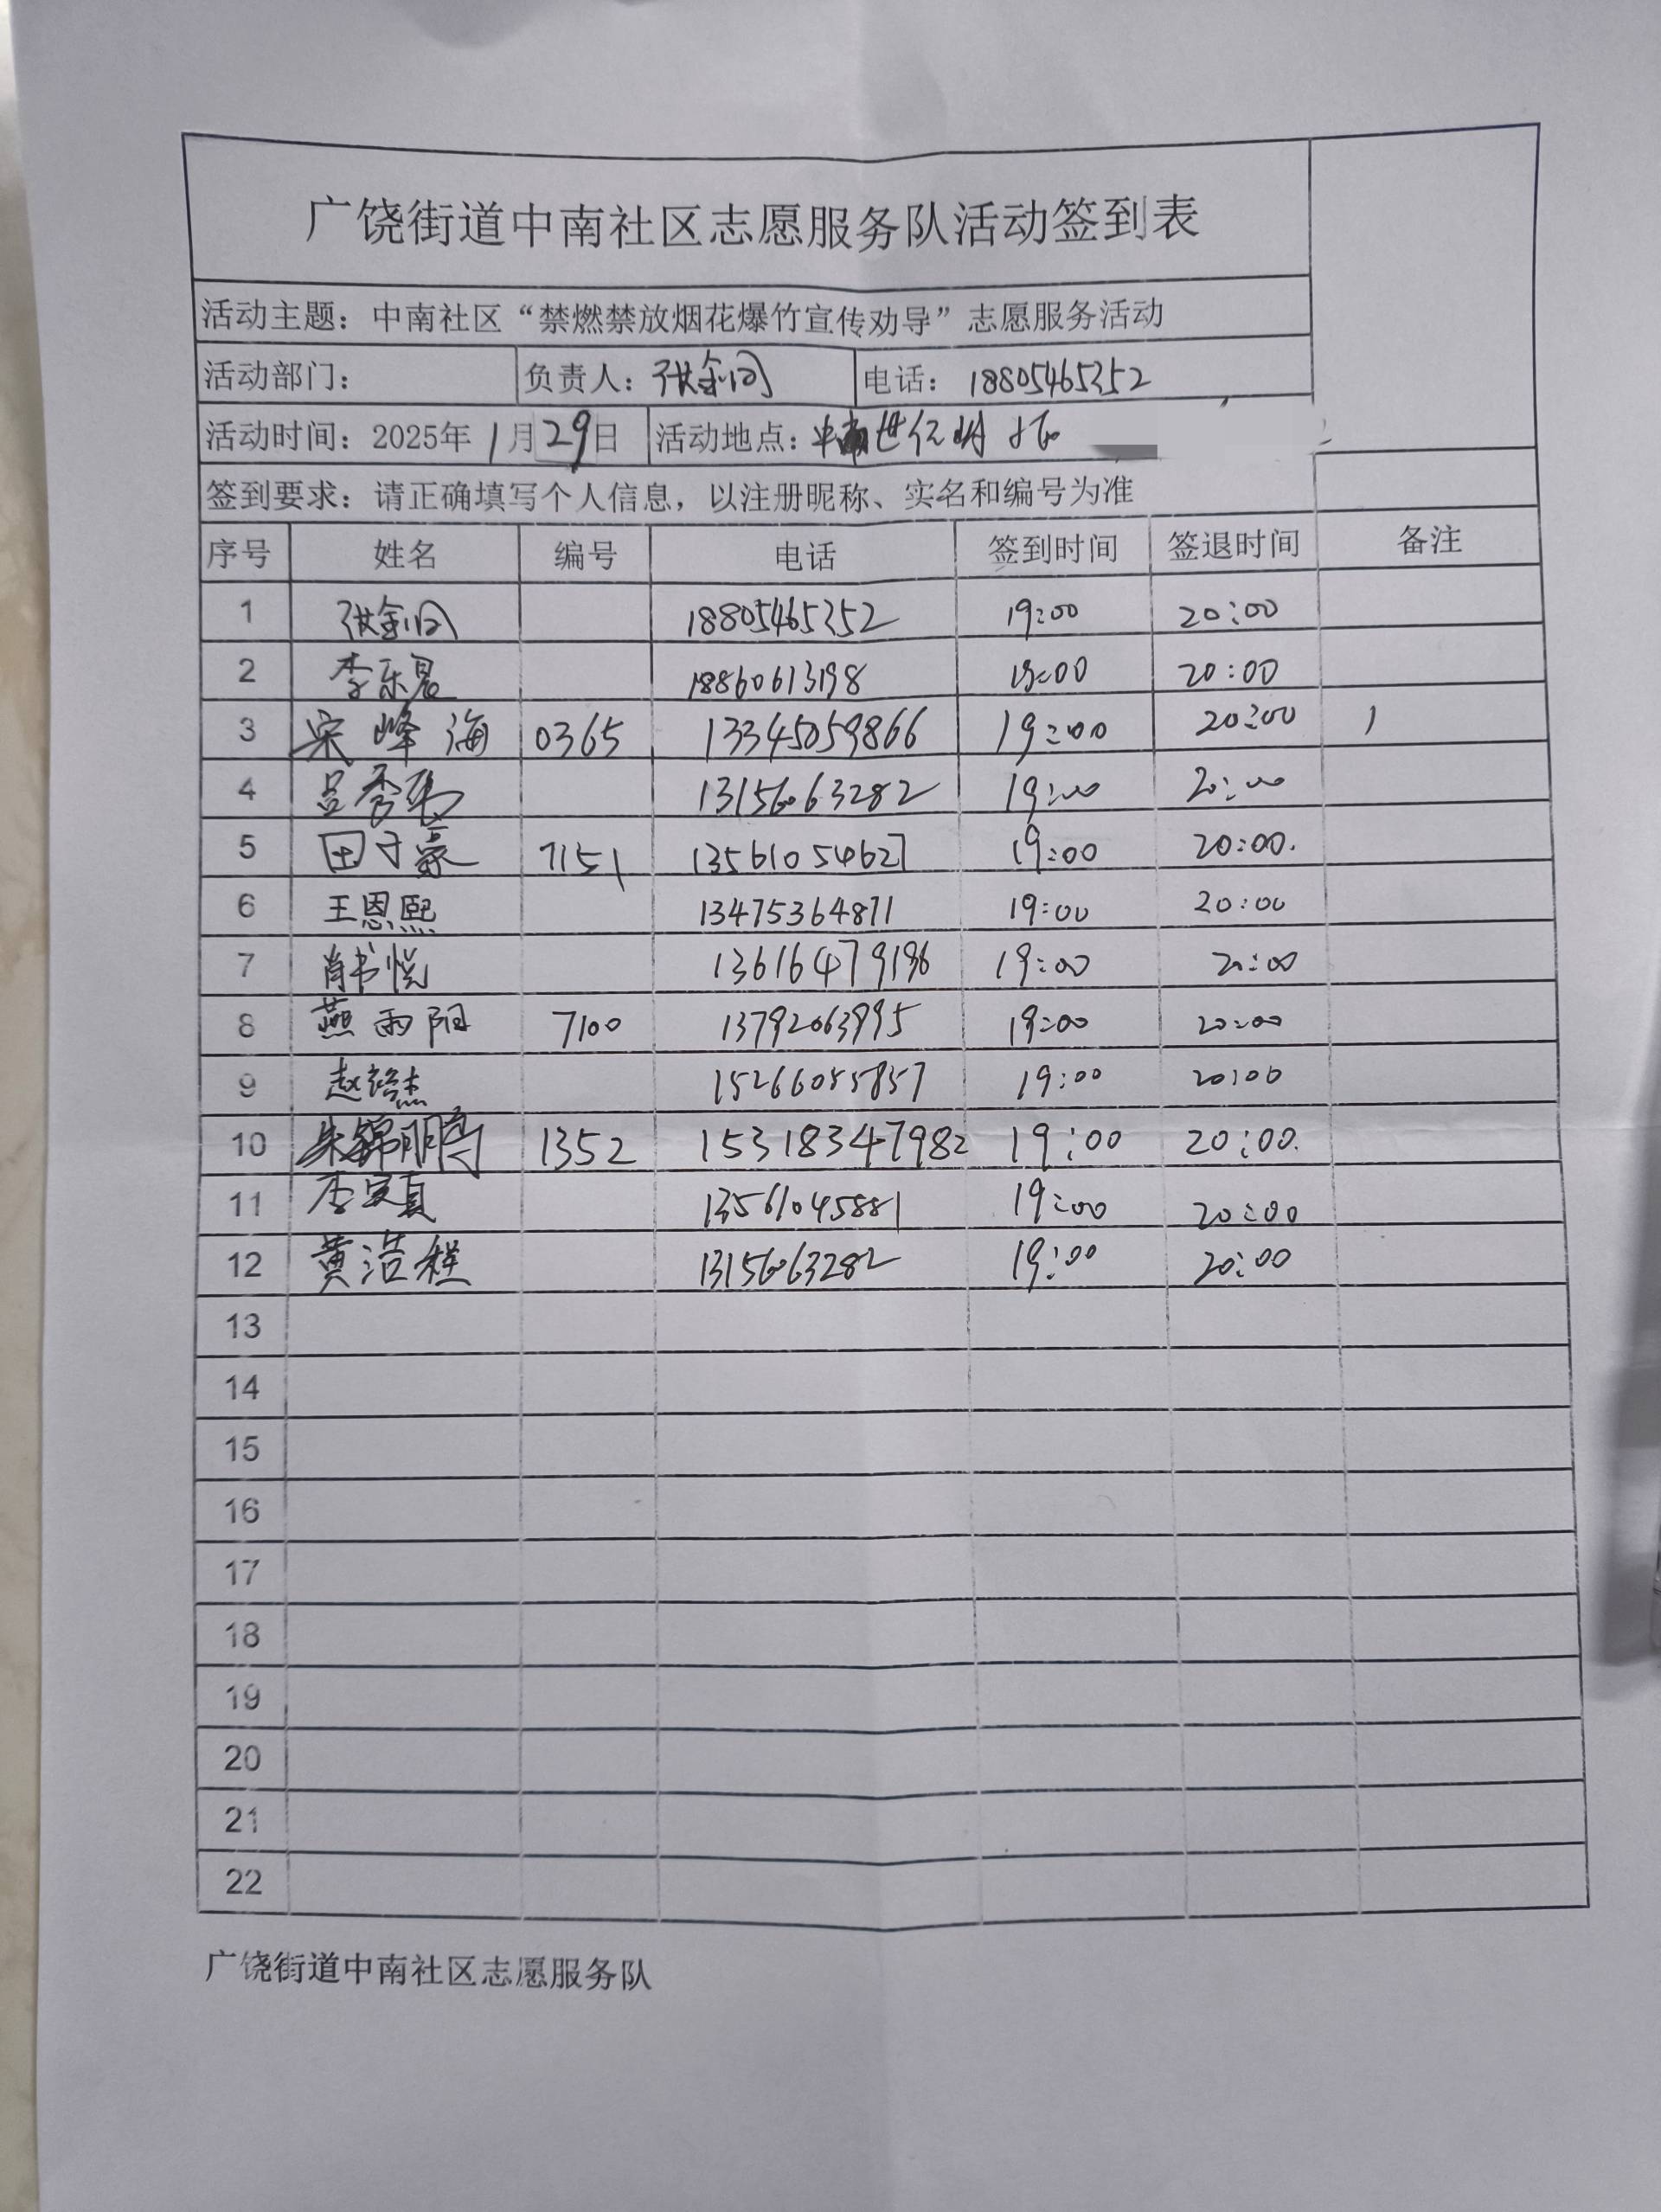 广饶街道中南社区志愿服务队活动签到表
活动主题：中南社区“禁燃禁放烟花爆竹宣传劝导”志愿服务活动
活动部门： 负责人：张金 电话：18805465352
活动时间：2025年1月29日 活动地点：中南世纪
签到要求：请正确填写个人信息，以注册昵称、实名和编号为准
序号 姓名 编号 电话 签到时间 签退时间 备注
1 张金 18805465352 19:00 20:00
2 李乐 18860613198 19:00 20:00
3 宋峰海 0365 13345059866 19:00 20:00
4 吕秀 13156063282 19:00 20:00
5 田子豪 7151 13561054627 19:00 20:00.
6 王恩熙 13475364871 19:00 20:00
7 肖书悦 13616479196 19:00 20:00
8 燕雨阳 7100 13792063995 19:00 20:00
9 赵杰 15266085857 19:00 20:00
10 朱锦鹏 1352 15318347982 19:00 20:00.
11 李 13561045881 19:00 20:00
12 黄浩程 13156063282 19:00 20:00
13
14
15
16
17
18
19
20
21
22
广饶街道中南社区志愿服务队